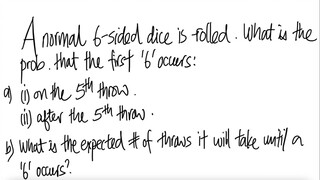 A normal 6-sided dice is rolled. What is the
prob. that the first '6' occurs:
a) (i) on the 5th throw.
(ii) after the 5th throw.
b) What is the expected # of throws it will take until a
'6' occurs?